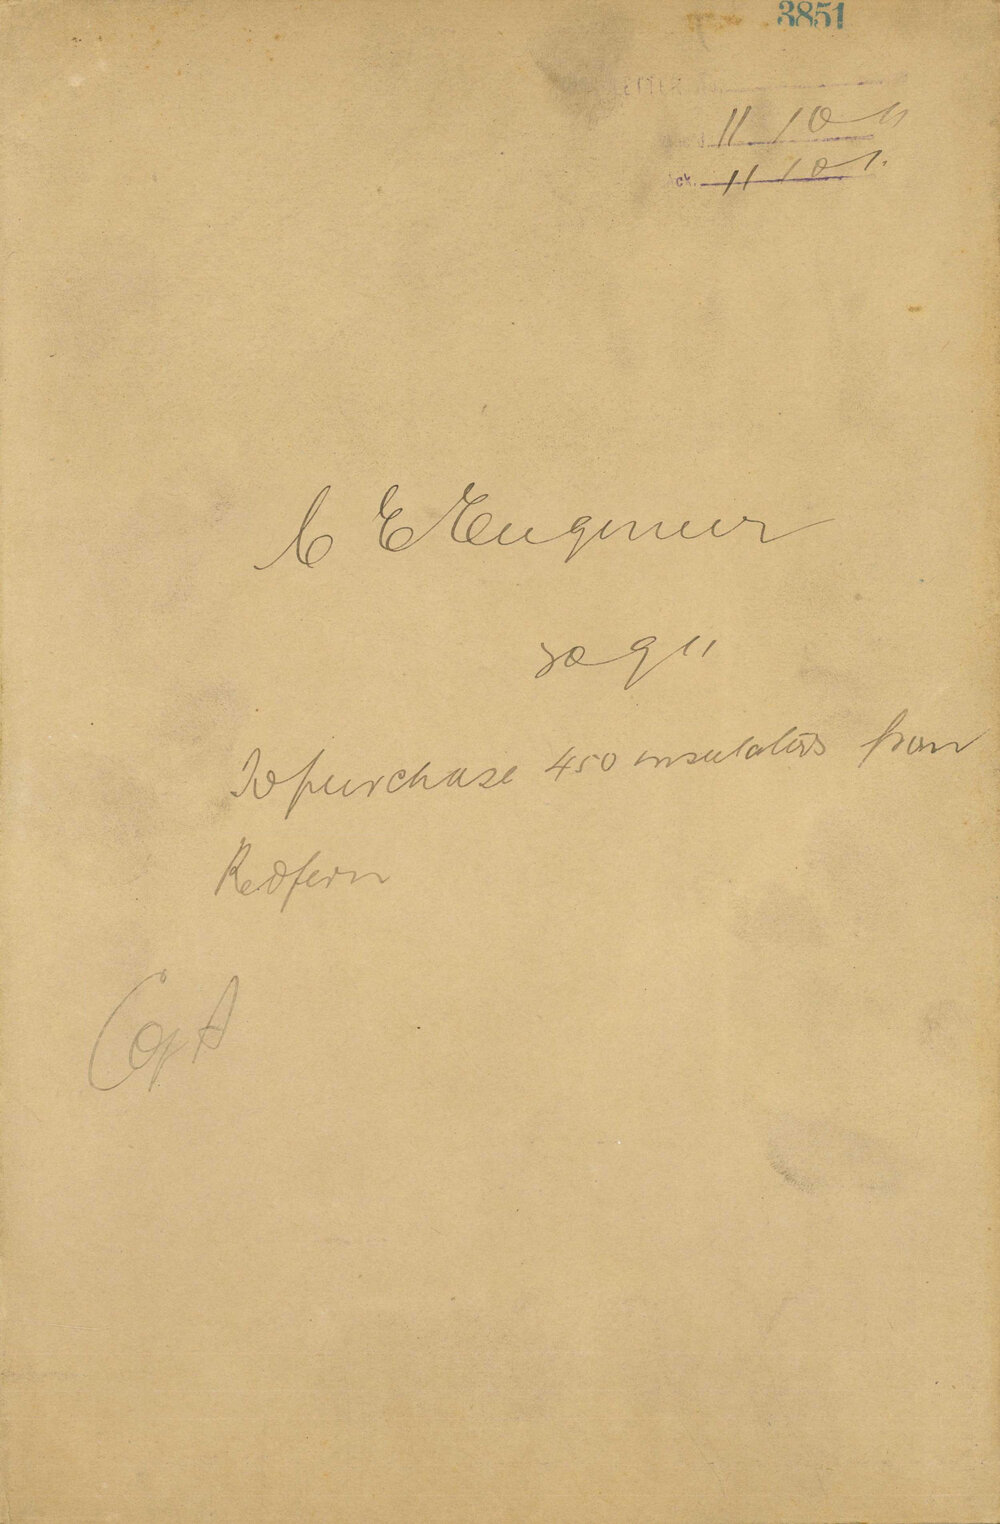 3851
11 10 11
Ack. 11 10 1.
C E Engineer
30 9 11
To purchase 450 insulators from
Redfern